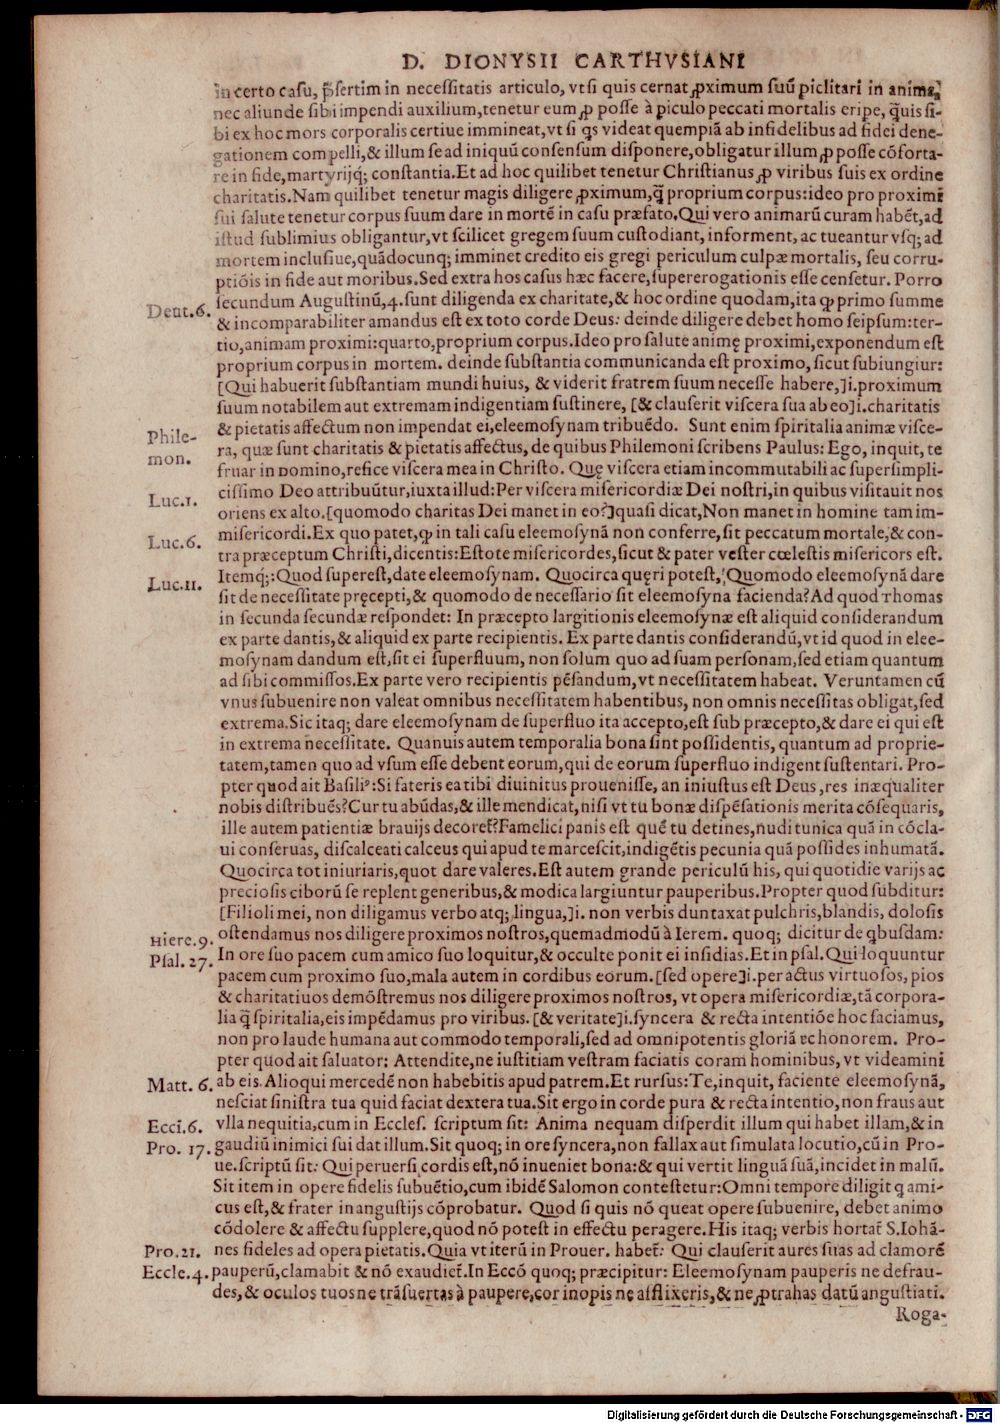 D. DIONYSII CARTHVSIANI
in certo casu, p̄sertim in necessitatis articulo, vt si quis cernat ꝓximum suũ ꝑiclitari in anima,
nec aliunde sibi impendi auxilium, tenetur eum ꝓ posse à ꝑiculo peccati mortalis eripe, q̃uis si-
bi ex hoc mors corporalis certiue immineat, vt si qs videat quempiã ab infidelibus ad fidei dene-
gationem compelli, & illum se ad iniquũ consensum disponere, obligatur illum ꝓ posse cõforta-
re in fide, martyrijq; constantia. Et ad hoc quilibet tenetur Christianus ꝓ viribus suis ex ordine
charitatis. Nam quilibet tenetur magis diligere ꝓximum, q̃ proprium corpus: ideo pro proximi
sui salute tenetur corpus suum dare in mortẽ in casu præfato. Qui vero animarũ curam habẽt, ad
istud sublimius obligantur, vt scilicet gregem suum custodiant, informent, ac tueantur vsq; ad
mortem inclusiue, quãdocunq; imminet credito eis gregi periculum culpæ mortalis, seu corru-
ptiõis in fide aut moribus. Sed extra hos casus hæc facere, supererogationis esse censetur. Porro
Deut. 6. secundum Augustinũ, 4. sunt diligenda ex charitate, & hoc ordine quodam, ita ꝙ primo summe
& incomparabiliter amandus est ex toto corde Deus: deinde diligere debet homo seipsum: ter-
tio, animam proximi: quarto, proprium corpus. Ideo pro salute animę proximi, exponendum est
proprium corpus in mortem. deinde substantia communicanda est proximo, sicut subiungiur:
[Qui habuerit substantiam mundi huius, & viderit fratrem suum necesse habere,] i. proximum
suum notabilem aut extremam indigentiam sustinere, [& clauserit viscera sua ab eo] i. charitatis
Phile- & pietatis affectum non impendat ei, eleemosynam tribuẽdo. Sunt enim spiritalia animæ visce-
mon. ra, quæ sunt charitatis & pietatis affectus, de quibus Philemoni scribens Paulus: Ego, inquit, te
fruar in Domino, refice viscera mea in Christo. Quę viscera etiam incommutabili ac supersimpli-
Luc. 1. cissimo Deo attribuũtur, iuxta illud: Per viscera misericordiæ Dei nostri, in quibus visitauit nos
oriens ex alto. [quomodo charitas Dei manet in eo?] quasi dicat, Non manet in homine tam im-
Luc. 6. misericordi. Ex quo patet, ꝙ in tali casu eleemosynã non conferre, sit peccatum mortale, & con-
tra præceptum Christi, dicentis: Estote misericordes, sicut & pater vester cœlestis misericors est.
Luc. 11. Itemq;: Quod superest, date eleemosynam. Quocirca quęri potest, Quomodo eleemosynã dare
sit de necessitate pręcepti, & quomodo de necessario sit eleemosyna facienda? Ad quod Thomas
in secunda secundæ respondet: In præcepto largitionis eleemosynæ est aliquid considerandum
ex parte dantis, & aliquid ex parte recipientis. Ex parte dantis considerandũ, vt id quod in elee-
mosynam dandum est, sit ei superfluum, non solum quo ad suam personam, sed etiam quantum
ad sibi commissos. Ex parte vero recipientis pẽsandum, vt necessitatem habeat. Veruntamen cũ
vnus subuenire non valeat omnibus necessitatem habentibus, non omnis necessitas obligat, sed
extrema. Sic itaq; dare eleemosynam de superfluo ita accepto, est sub præcepto, & dare ei qui est
in extrema necessitate. Quanuis autem temporalia bona sint possidentis, quantum ad proprie-
tatem, tamen quo ad vsum esse debent eorum, qui de eorum superfluo indigent sustentari. Pro-
pter quod ait Basiliꝰ: Si fateris ea tibi diuinitus prouenisse, an iniustus est Deus, res inæqualiter
nobis distribuẽs? Cur tu abũdas, & ille mendicat, nisi vt tu bonæ dispẽsationis merita cõsequaris,
ille autem patientiæ brauijs decoret̃? Famelici panis est quẽ tu detines, nudi tunica quã in cõcla-
ui conseruas, discalceati calceus qui apud te marcescit, indigẽtis pecunia quã possides inhumatã.
Quocirca tot iniuriaris, quot dare valeres. Est autem grande periculũ his, qui quotidie varijs ac
preciosis ciborũ se replent generibus, & modica largiuntur pauperibus. Propter quod subditur:
[Filioli mei, non diligamus verbo atq; lingua,] i. non verbis duntaxat pulchris, blandis, dolosis
Hiere. 9. ostendamus nos diligere proximos nostros, quemadmodũ à Ierem. quoq; dicitur de q̃busdam:
Psal. 27. In ore suo pacem cum amico suo loquitur, & occulte ponit ei insidias. Et in psal. Qui loquuntur
pacem cum proximo suo, mala autem in cordibus eorum. [sed opere] i. per actus virtuosos, pios
& charitatiuos demõstremus nos diligere proximos nostros, vt opera misericordiæ, tã corpora-
lia q̃ spiritalia, eis impẽdamus pro viribus. [& veritate] i. syncera & recta intentiõe hoc faciamus,
non pro laude humana aut commodo temporali, sed ad omnipotentis gloriã et honorem. Pro-
pter quod ait saluator: Attendite, ne iustitiam vestram faciatis coram hominibus, vt videamini
Matt. 6. ab eis. Alioqui mercedẽ non habebitis apud patrem. Et rursus: Te, inquit, faciente eleemosynã,
nesciat sinistra tua quid faciat dextera tua. Sit ergo in corde pura & recta intentio, non fraus aut
Eccl. 6. vlla nequitia, cum in Eccles. scriptum sit: Anima nequam disperdit illum qui habet illam, & in
Pro. 17. gaudiũ inimici sui dat illum. Sit quoq; in ore syncera, non fallax aut simulata locutio, cũ in Pro-
ue. scriptũ sit: Qui peruersi cordis est, nõ inueniet bona: & qui vertit linguã suã, incidet in malũ.
Sit item in opere fidelis subuẽtio, cum ibidẽ Salomon contestetur: Omni tempore diligit q ami-
cus est, & frater in angustijs cõprobatur. Quod si quis nõ queat opere subuenire, debet animo
cõdolere & affectu supplere, quod nõ potest in effectu peragere. His itaq; verbis hortat̃ S. Iohã-
Pro. 21. nes fideles ad opera pietatis. Quia vt iterũ in Prouer. habet̃: Qui clauserit aures suas ad clamorẽ
Eccle. 4. pauperũ, clamabit & nõ exaudiet̃. In Eccõ quoq; præcipitur: Eleemosynam pauperis ne defrau-
des, & oculos tuos ne trãsuertas à paupere, cor inopis ne afflixeris, & ne ꝓtrahas datũ angustiati.
Roga-
Digitalisierung gefördert durch die Deutsche Forschungsgemeinschaft - DFG